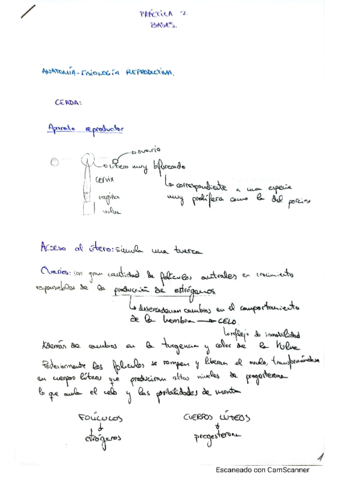 PRÁCTICA 2
BASES.
ANATOMÍA-FISIOLOGÍA REPRODUCTIVA.
CERDA:
Aparato reproductor
ovario
útero muy bifurcado
cervix
correspondiente a una especie
vagina
muy prolífera como la del porcino
vulva
Acceso al útero: simula una tuerca
Ovarios: con gran cantidad de folículos antrales en crecimiento
responsables de la producción de estrógenos
desencadenan cambios en el comportamiento
de la hembra → CELO.
reflejo de inmovilidad
Además de cambios en la turgencia y color de la vulva
Posteriormente los folículos se rompen y liberan el óvulo, transformándose
en cuerpos lúteos que producirán altos niveles de progesterona
lo que anula el celo y las posibilidades de monta
FOLÍCULOS
CUERPOS LÚTEOS
estrógenos
progesterona
1
Escaneado con CamScanner